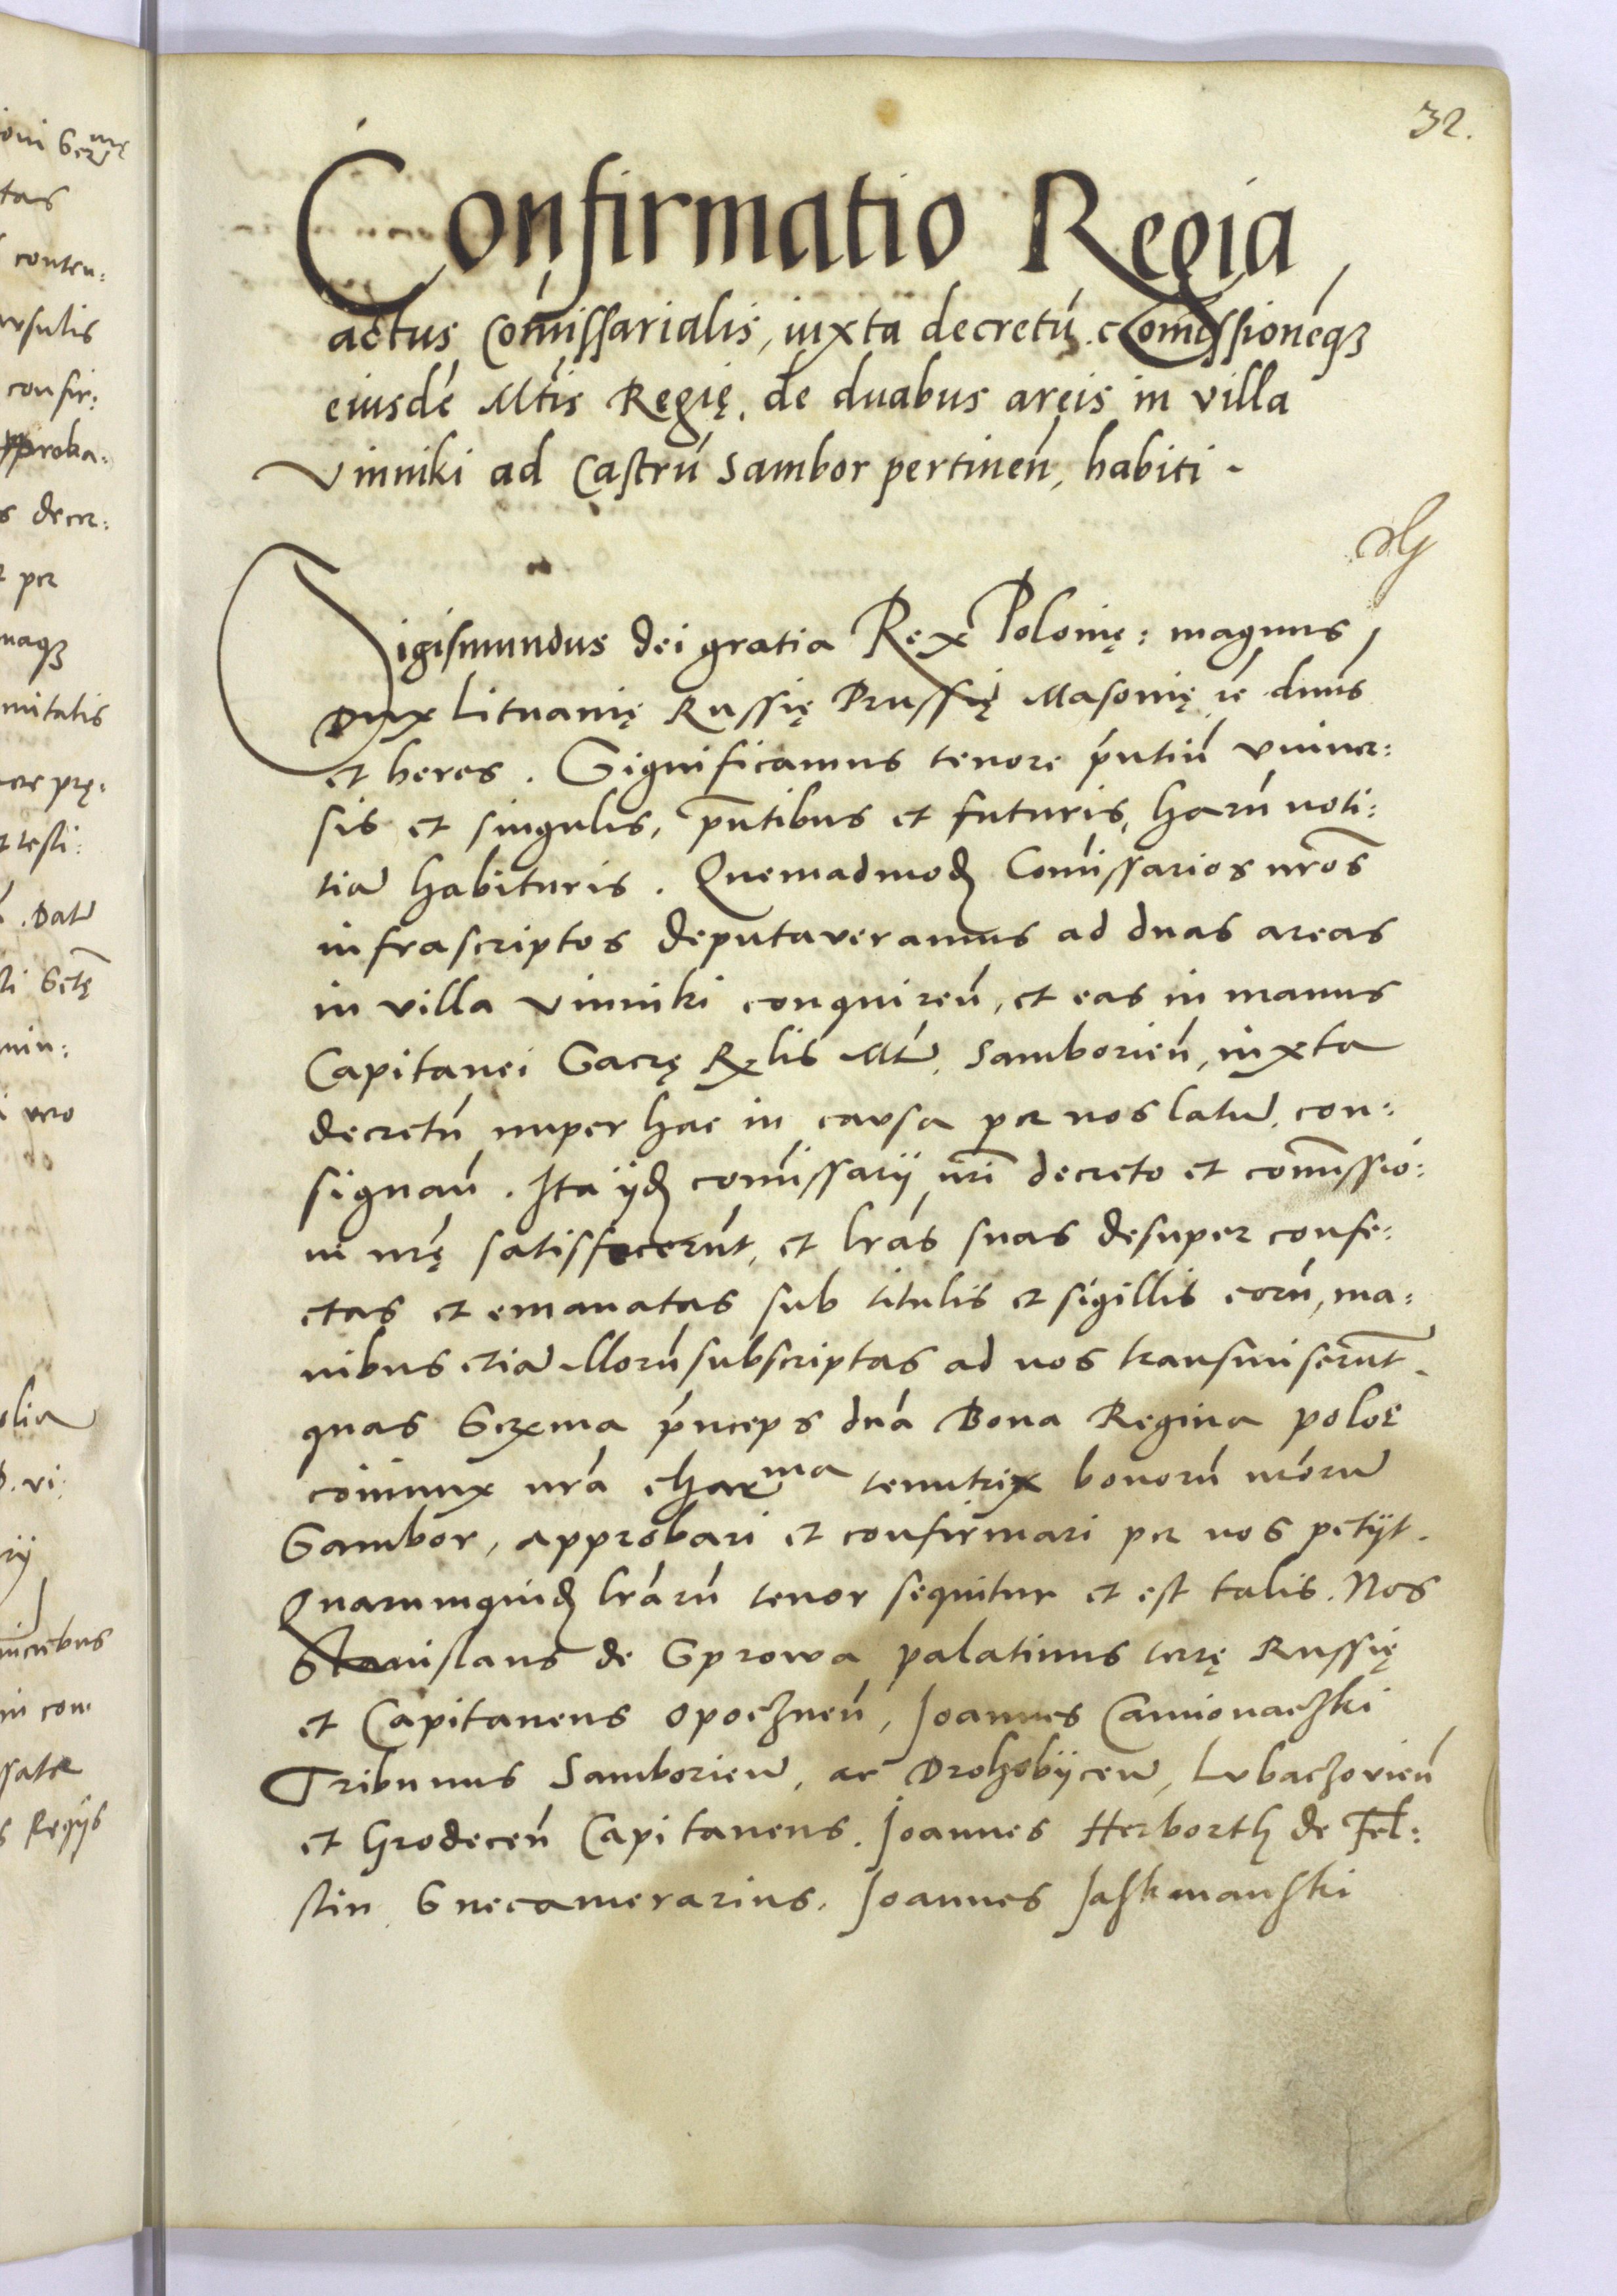 32.
Confirmatio Regia
actus Com̄issarialis, iuxta decretū com̄issionēq3
eiusdē Mtis Regię, de duabus areis in villa
Vinniki ad Castrū Sambor pertineñ, habiti.
Sigismundus dei gratia Rex Polonię: magnus
Dux Lituanię Russię Prussię Masonię ꝛc̄ dn̄us
et heres. Significamus tenore p̄ntiū vniuer:
sis et singulis, p̄ntibus et futuris, harū noti:
tiā habituris. Quemadmod Com̄issarios nr̄os
infrascriptos deputaveramus ad duas areas
in villa vinniki conquireñ, et eas in manus
Capitanei Sacrę Rlis Mtū, Samborieñ, iuxta
decretū nuper hac in causa per nos latū, con:
signañ. Ita ijd com̄issarij nr̄i decreto et com̄issio:
ni nr̄ę satisfecerūt, et lr̄as suas desuper confe:
ctas et emanatas sub titulis et sigillis eorū, ma:
nibus etiā illorū subscriptas ad nos transmiserūt.
quas Serma p̄nceps dn̄a Bona Regina poloę
coniunx nr̄a charma tenutrix bonorū nr̄orū
Sambor, approbari et confirmari per nos petijt.
Quarumquid lr̄arū tenor sequitur et est talis. Nos
Stanislaus de Sprowa palatinus terrę Russię
et Capitaneus opoczneñ, Joannes Camionaczki
Tribunus Samborieñ, ac Drohobijceñ, Lubaczovieñ
et Grodeceñ Capitaneus. Joannes Herborth de Fel:
stin Succamerarius. Joannes Jaskmanski